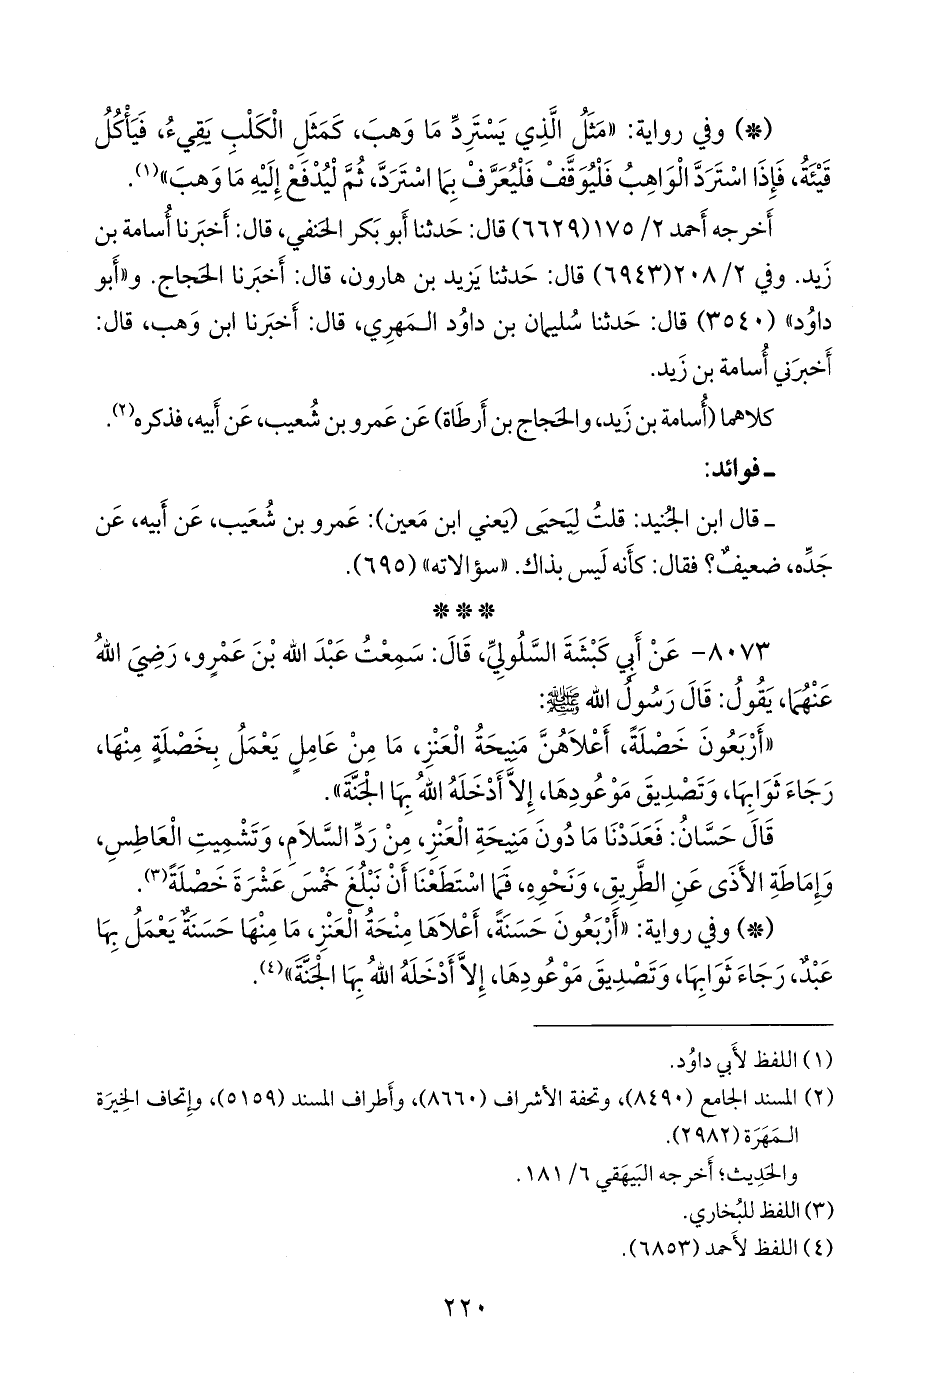 (*) وفي رواية: «مَثَلُ الَّذِي يَسْتَرِدُّ مَا وَهَبَ، كَمَثَلِ الْكَلْبِ يَقِيءُ، فَيَأْكُلُ
قَيْئَهُ، فَإِذَا اسْتَرَدَّ الْوَاهِبُ فَلْيُوَقَّفْ فَلْيُعَرَّفْ بِمَا اسْتَرَدَّ، ثُمَّ لْيُدْفَعْ إِلَيْهِ مَا وَهَبَ»(١).
أخرجه أحمد ٢/ ١٧٥(٦٦٢٩) قال: حَدثنا أَبو بَكر الحَنفي، قال: أَخبَرنا أُسامة بن
زَيد. وفي ٢/ ٢٠٨(٦٩٤٣) قال: حَدثنا يَزيد بن هارون، قال: أَخبَرنا الحَجاج. و«أَبو
داوُد» (٣٥٤٠) قال: حَدثنا سُليمان بن داوُد المَهري، قال: أَخبَرنا ابن وَهب، قال:
أَخبرَني أُسامة بن زَيد.
كلاهما (أُسامة بن زَيد، والحَجاج بن أَرطَاة) عَن عَمرو بن شُعيب، عَن أَبيه، فذكره(٢).
ـ فوائد:
ـ قال ابن الجُنيد: قلتُ لِيَحيَى (يَعني ابن مَعين): عَمرو بن شُعَيب، عَن أَبيه، عَن
جَدِّه، ضعيفٌ؟ فقال: كأَنه لَيس بذاك. «سؤالاته» (٦٩٥).
* * *
٨٠٧٣- عَنْ أَبِي كَبْشَةَ السَّلُولِيِّ، قَالَ: سَمِعْتُ عَبْدَ الله بْنَ عَمْرٍو، رَضِيَ اللهُ
عَنْهُمَا، يَقُولُ: قَالَ رَسُولُ الله ﷺ:
«أَرْبَعُونَ خَصْلَةً، أَعْلاَهُنَّ مَنِيحَةُ الْعَنْزِ، مَا مِنْ عَامِلٍ يَعْمَلُ بِخَصْلَةٍ مِنْهَا،
رَجَاءَ ثَوَابِهَا، وَتَصْدِيقَ مَوْعُودِهَا، إِلاَّ أَدْخَلَهُ اللهُ بِهَا الْجَنَّةَ».
قَالَ حَسَّانُ: فَعَدَدْنَا مَا دُونَ مَنِيحَةِ الْعَنْزِ، مِنْ رَدِّ السَّلاَمِ، وَتَشْمِيتِ الْعَاطِسِ،
وَإِمَاطَةِ الأَذَى عَنِ الطَّرِيقِ، وَنَحْوِهِ، فَمَا اسْتَطَعْنَا أَنْ نَبْلُغَ خَمْسَ عَشْرَةَ خَصْلَةً(٣).
(*) وفي رواية: «أَرْبَعُونَ حَسَنَةً، أَعْلاَهَا مِنْحَةُ الْعَنْزِ، مَا مِنْهَا حَسَنَةٌ يَعْمَلُ بِهَا
عَبْدٌ، رَجَاءَ ثَوَابِهَا، وَتَصْدِيقَ مَوْعُودِهَا، إِلاَّ أَدْخَلَهُ اللهُ بِهَا الْجَنَّةَ»(٤).
(١) اللفظ لأَبي داوُد.
(٢) المسند الجامع (٨٤٩٠)، وتحفة الأشراف (٨٦٦٠)، وأَطراف المسند (٥١٥٩)، وإتحاف الخِيرَة
المَهَرَة (٢٩٨٢).
والحَدِيث؛ أخرجه البَيهَقي ٦/ ١٨١.
(٣) اللفظ للبُخاري.
(٤) اللفظ لأَحمد (٦٨٥٣).
٢٢٠